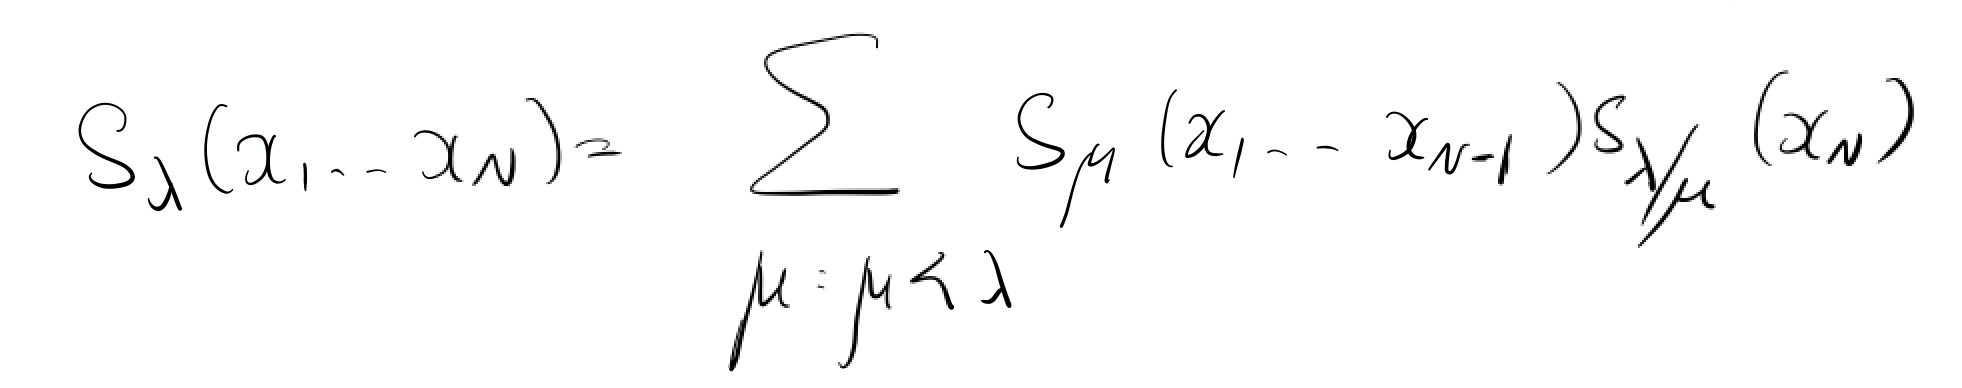 S_λ(x_1 .. x_N) = ∑_{μ : μ ≺ λ} S_μ(x_1 .. x_{N-1}) S_{λ/μ}(x_N)